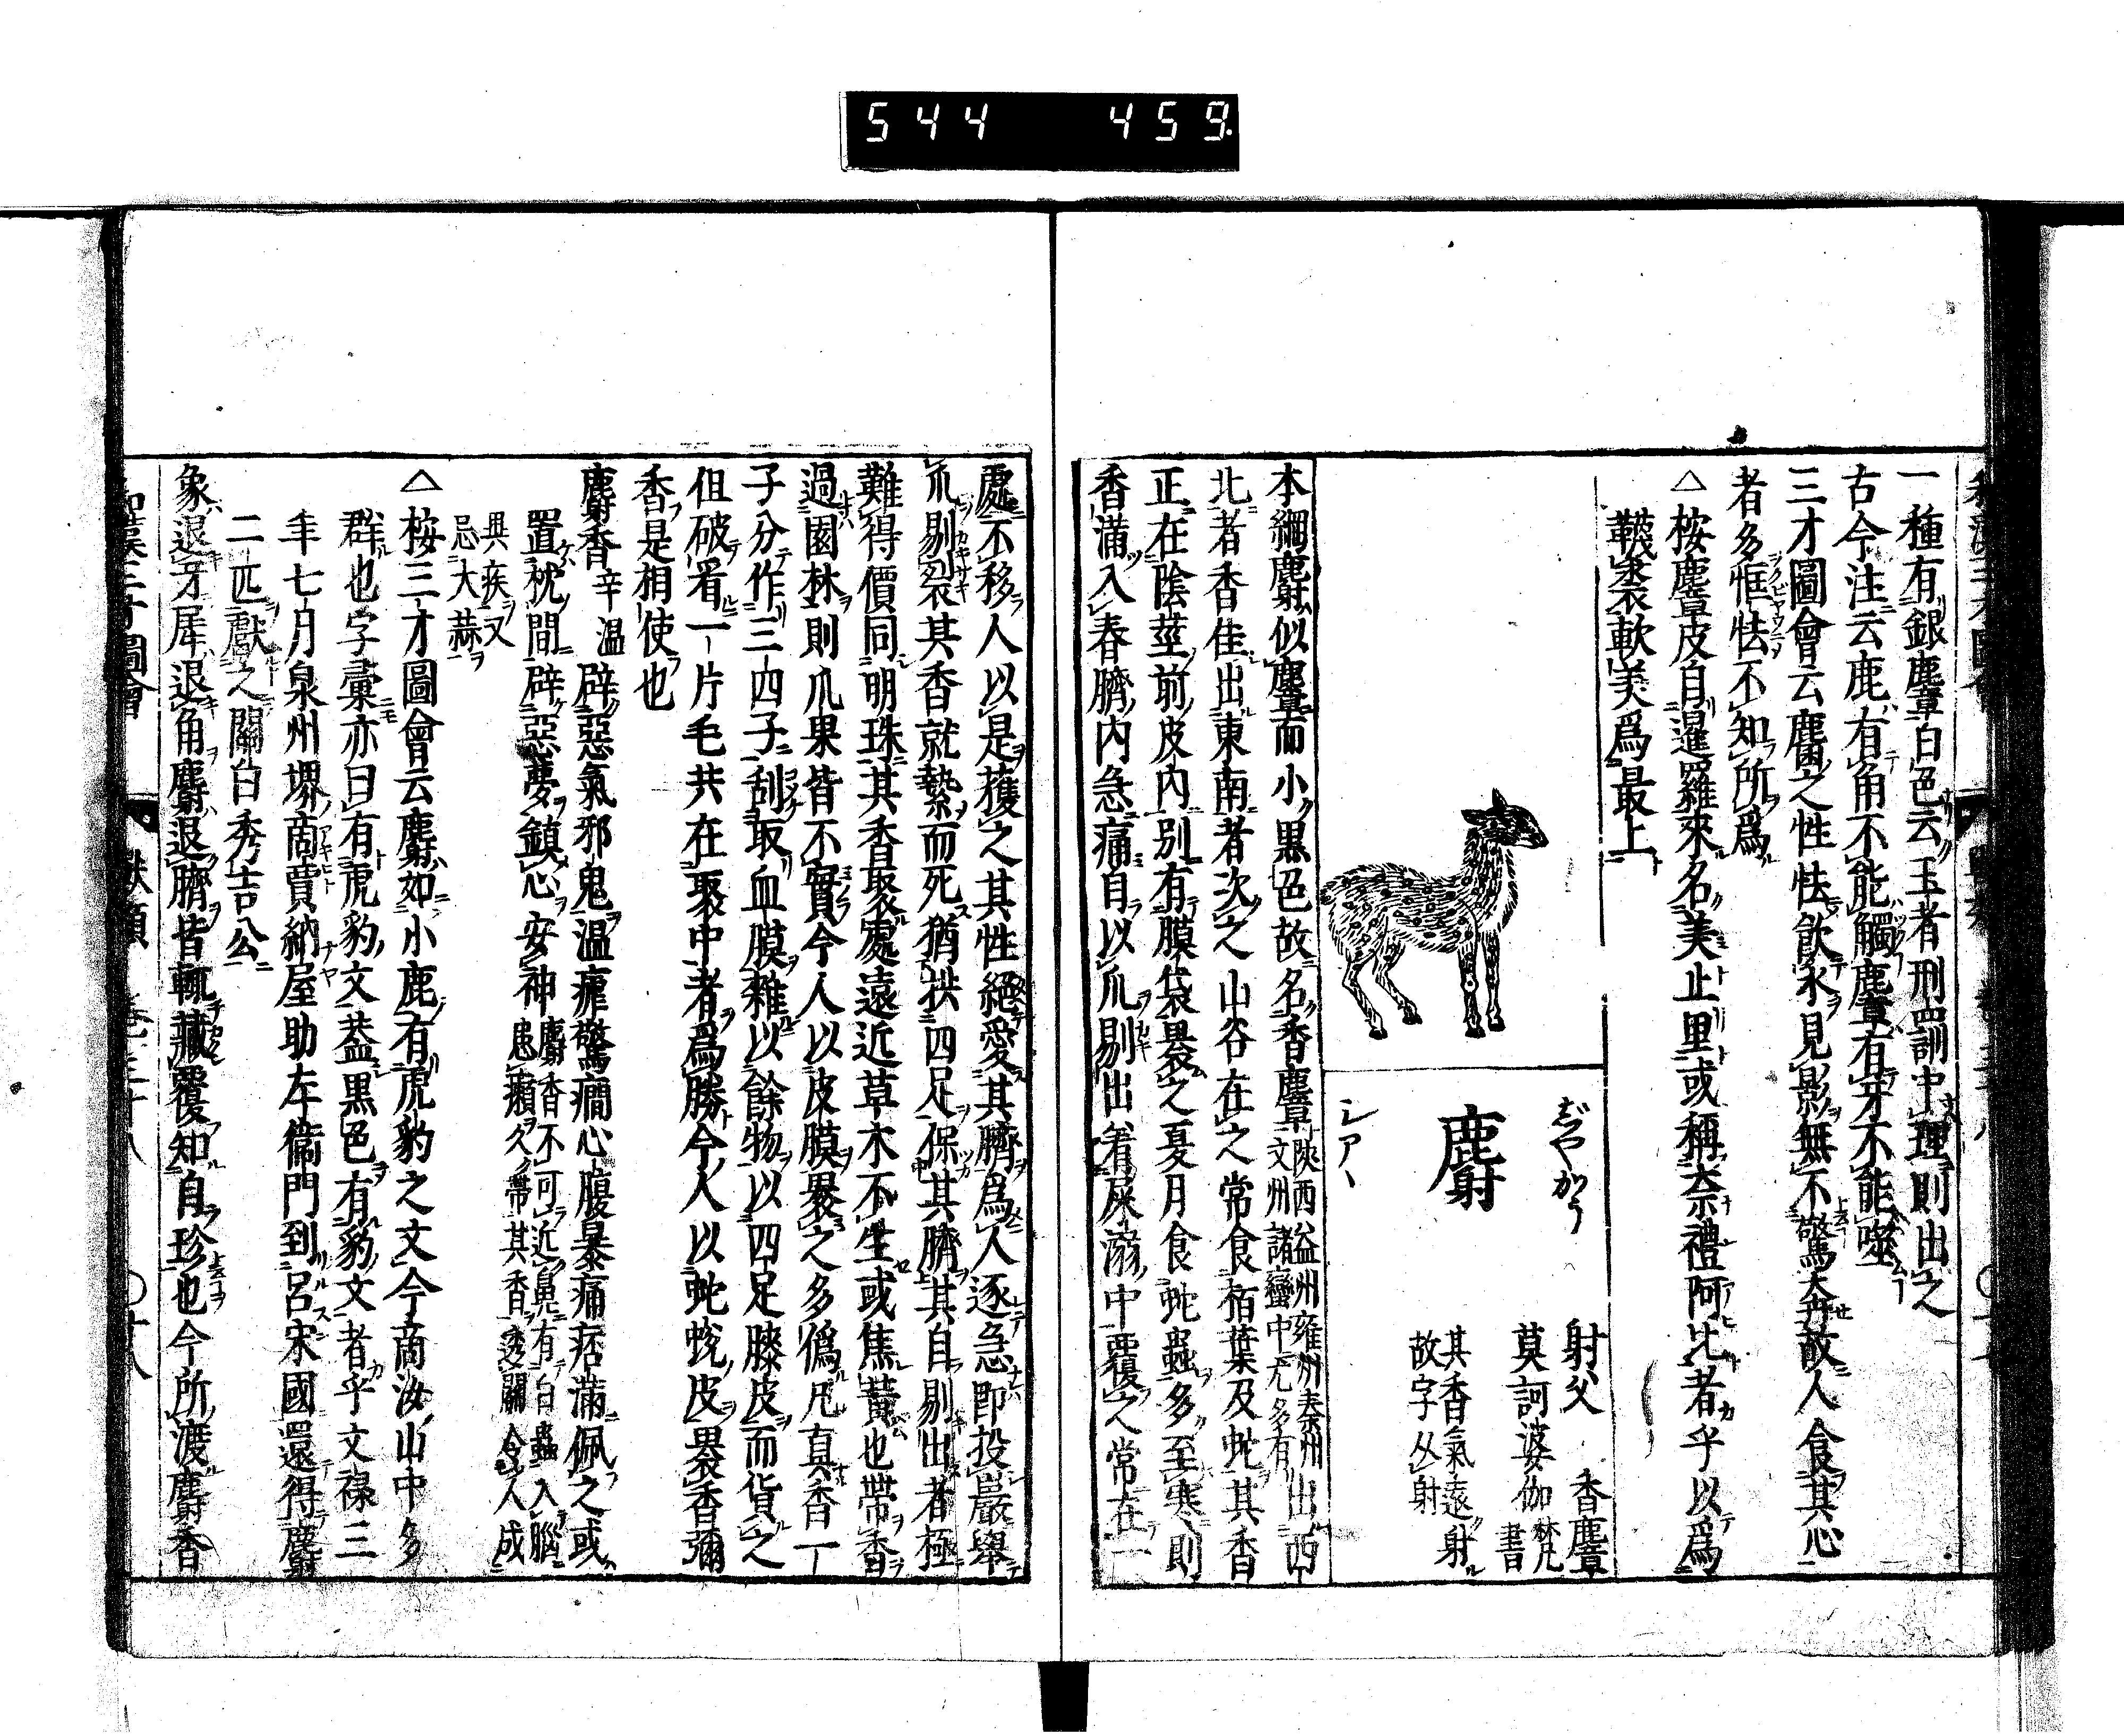 544 459
一種有銀麞白色云王者刑罰中理則出之
古今注云鹿有角不能觸麞有牙不能噬
三才圖會云麕之性怯飲水見影無不驚奔故人食其心
者多恇怯不知所爲
△桉麞皮自暹羅來名美止里或稱奈禮阿比者乎以爲
韈裘軟美爲最上
じやかう
麝
シアヽ
射父 香麞
莫訶婆伽 梵書
其香氣遠射
故字从射
本綱麝似麞而小黒色故名香麞 陝西益州雍州秦州
文州諸蠻中尤多有 出西
北者香佳出東南者次之山谷在之常食栢葉及虵其香
正在陰莖前皮内別有膜袋裹之夏月食虵蟲多至寒則
香滿入春臍内急痛自以爪剔出着屎溺中覆之常在一
處不移人以是獲之其性絕愛其臍爲人逐急即投巖舉
爪剔裂其香就縶而死猶拱四足保其臍其自剔出者極
難得價同明珠其香聚處遠近草木不生或焦黃也帶香
過園林則爪果皆不實今人以皮膜裹之多僞凡真香一
子分作三四子刮取血膜雜以餘物以四足膝皮而貨之
但破看一片毛共在聚中者爲勝今人以虵蛻皮裹香彌
香是相使也
麝香 辛温 辟惡氣邪鬼温瘧驚癎心腹暴痛痞滿佩之或
置枕間辟惡夢鎮心安神 麝香不可近鼻有白蟲入腦
患癩久帶其香透關令人成
異疾又
忌大蒜
△桉三才圖會云麝如小鹿有虎豹之文今商汝山中多
群也字彙亦曰有虎豹文葢黒色有豹文者乎文禄三
年七月泉州堺商賈納屋助左衛門到呂宋國還得麝
二匹獻之關白秀吉公
象退牙犀退角麝退臍皆輒藏覆知自珍也今所渡麝香
和漢三才圖會 獸類 卷三十八 〇十八